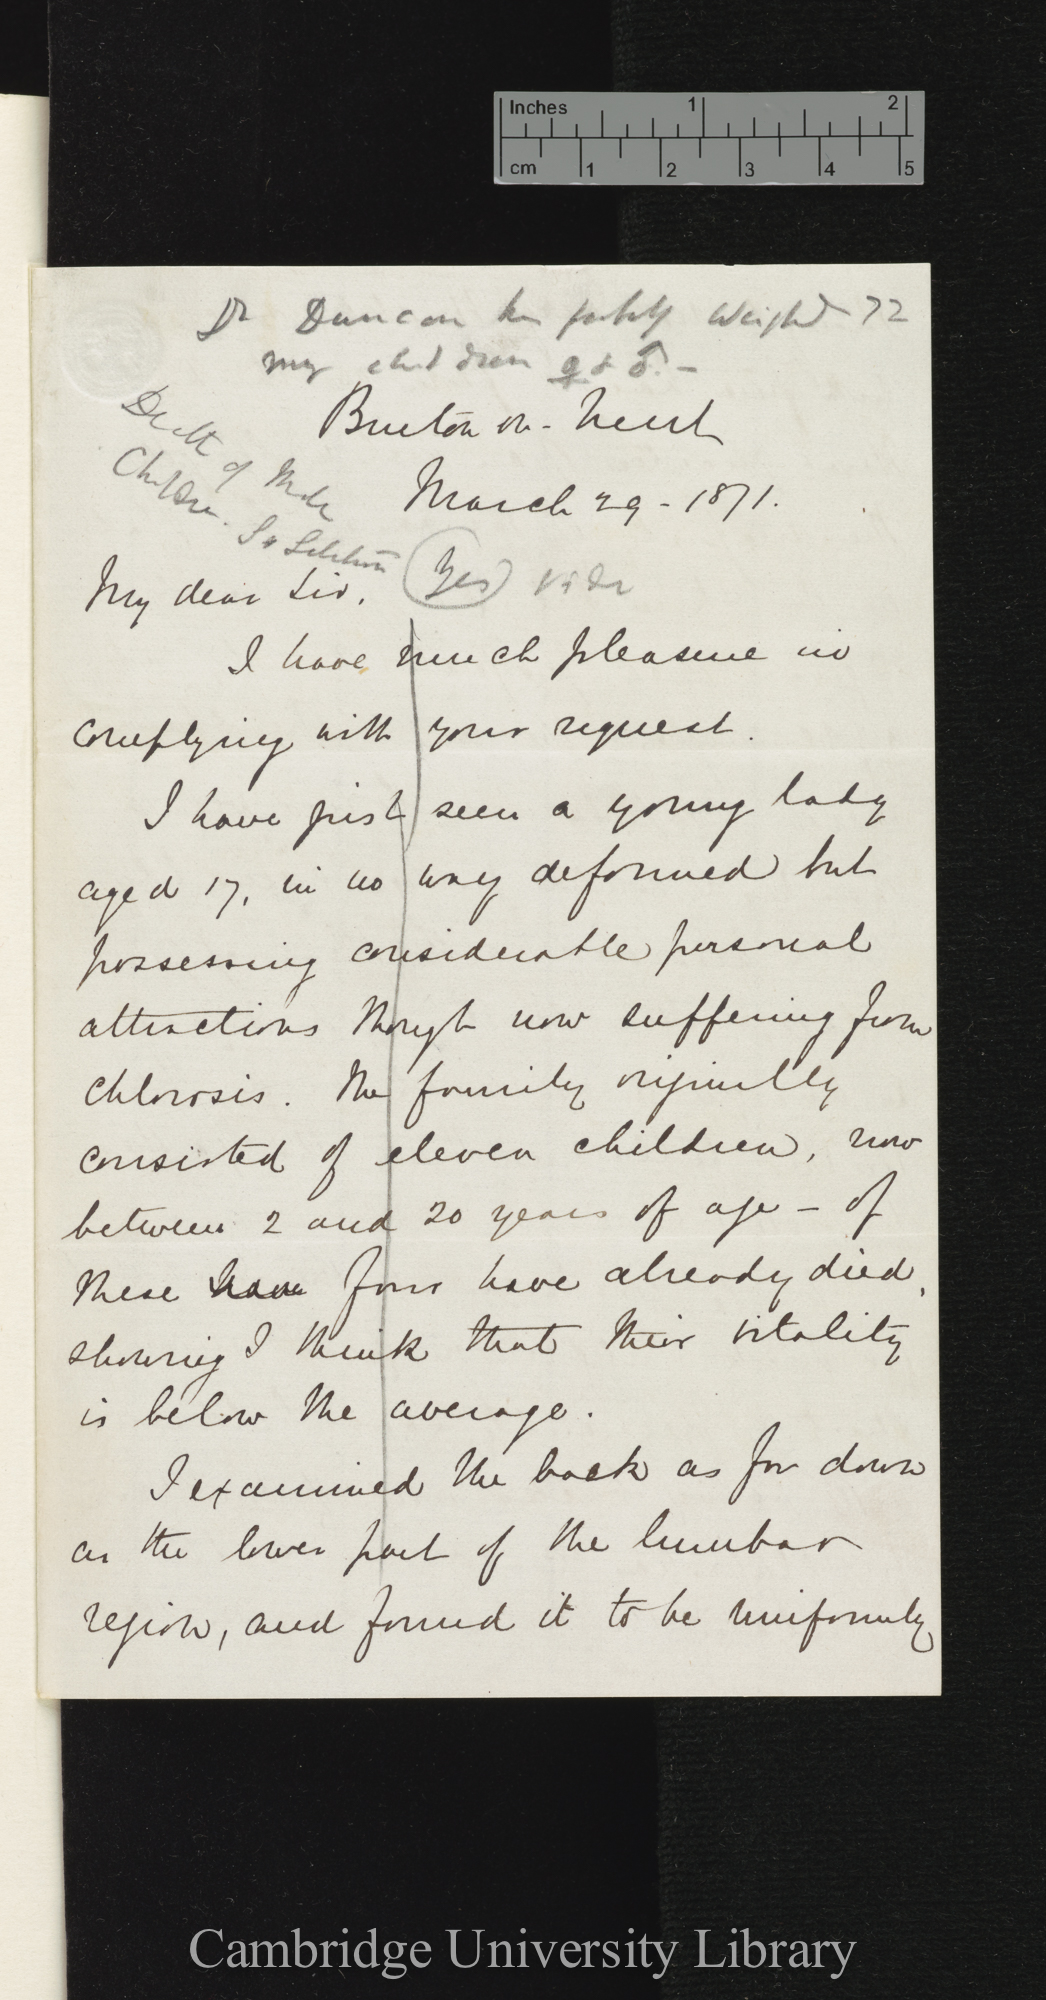 Inches 1 2
cm 1 2 3 4 5
Dr Duncan has probably weighed 72
my children ♀ & ♂. -
Death of Male
Children. Sx Selection
Burton on - Trent
March 29 - 1871.
My dear Sir. (Yes)
I have much pleasure in
complying with your request.
I have just seen a young lady
aged 17, in no way deformed but
possessing considerable personal
attractions though now suffering from
chlorosis. The family originally
consisted of eleven children, now
between 2 and 20 years of age – of
these have four have already died,
showing I think that their vitality
is below the average.
I examined the back as far down
as the lower part of the lumbar
region, and found it to be uniformly
Cambridge University Library